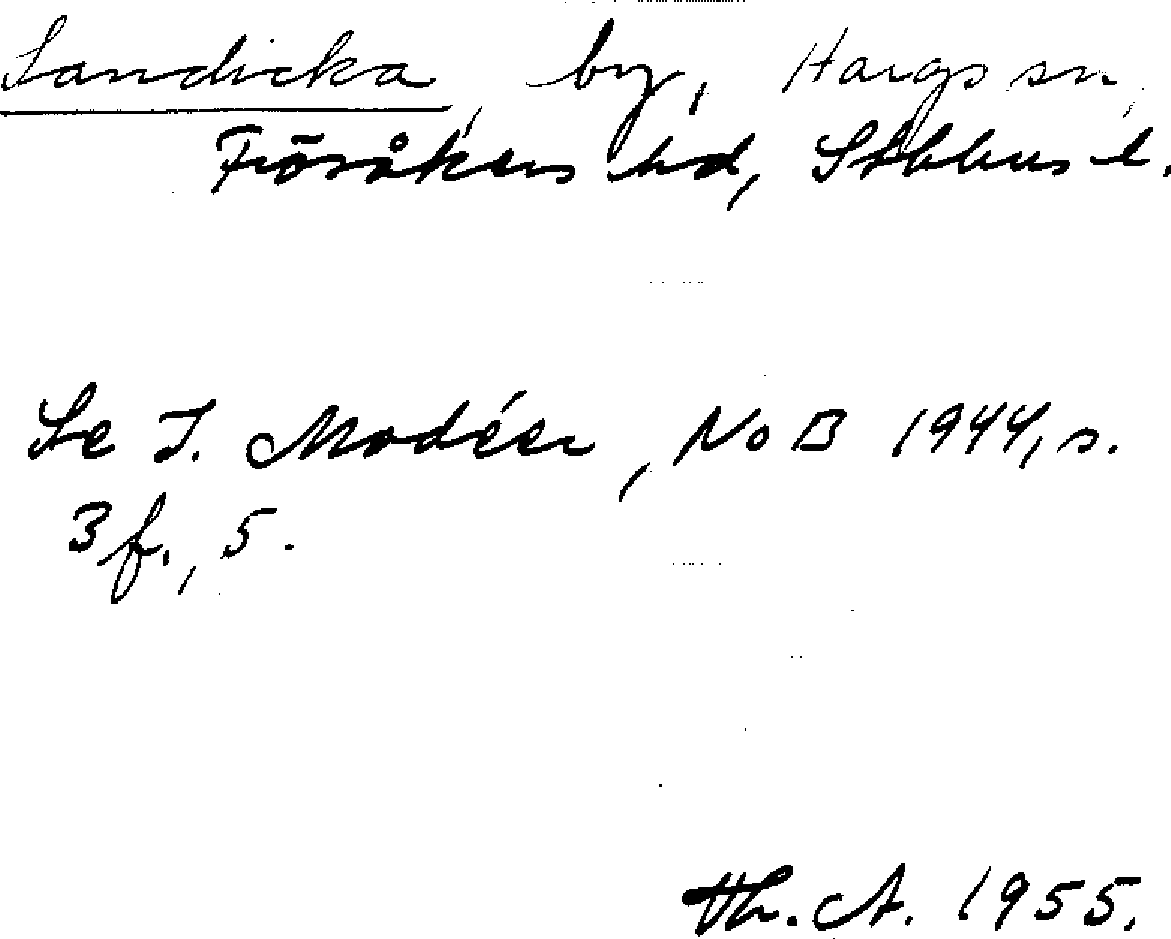 Sandicka, by, Hargs sn,
Frösåkers hd, Sthlms l.
Se I. Modéer, NoB 1944, s.
3 f., 5.
Th. A. 1955.